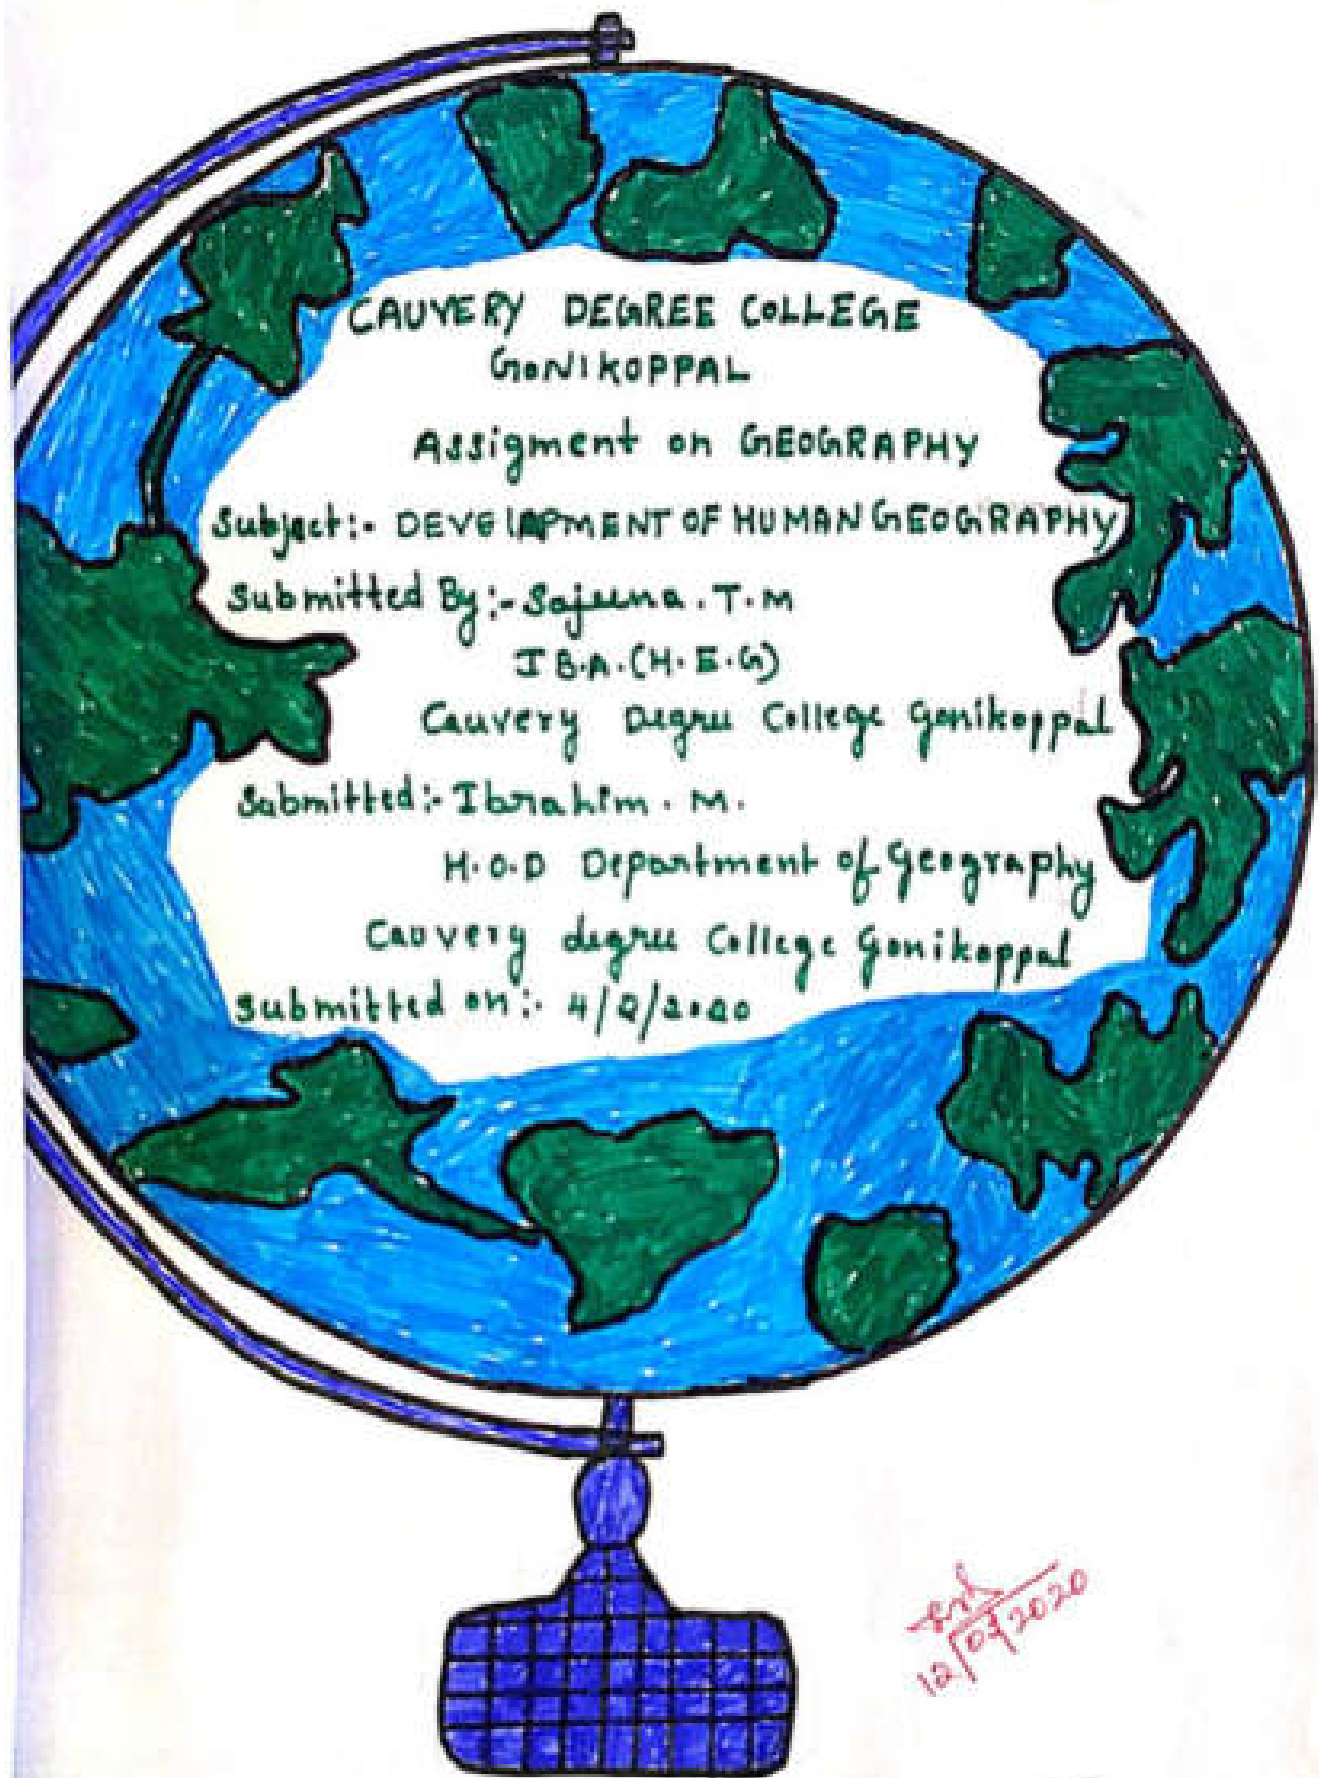 CAUVERY DEGREE COLLEGE
GONIKOPPAL
Assigment on GEOGRAPHY
Subject:- DEVELAPMENT OF HUMAN GEOGRAPHY
Submitted By:- Sajeena . T. M
I B.A. (H. E. G)
Cauvery Degree College Gonikoppal
Submitted:- Ibrahim . M.
H.O.D Department of Geography
Cauvery degree College Gonikoppal
Submitted on:- 4/2/2020
12/03/2020